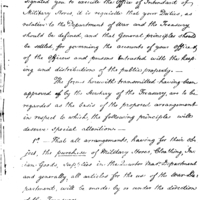 signated you to execute the Office of Intendant of
Military Stores, it is requisite that your Duties, as
relative to the Department of War and the Treasury
should be defined, and that General principles should
be settled, for governing the accounts of your Office &
of the Officers and persons entrusted with the keep-
ing and distributions of the public property.
The forms herewith transmitted having been
approved of by the Secretary of the Treasury, are to be
regarded as the basis of the proposed arrangements
in respect to which, the following principles will
deserve special attention.
1st That all arrangements, having for their ob-
ject the purchase of Military Stores, Clothing, In-
dian Goods, Supplies in the Quarter Masr Department
and generally, all articles for the use of the War De-
partment, will be made by or under the direction